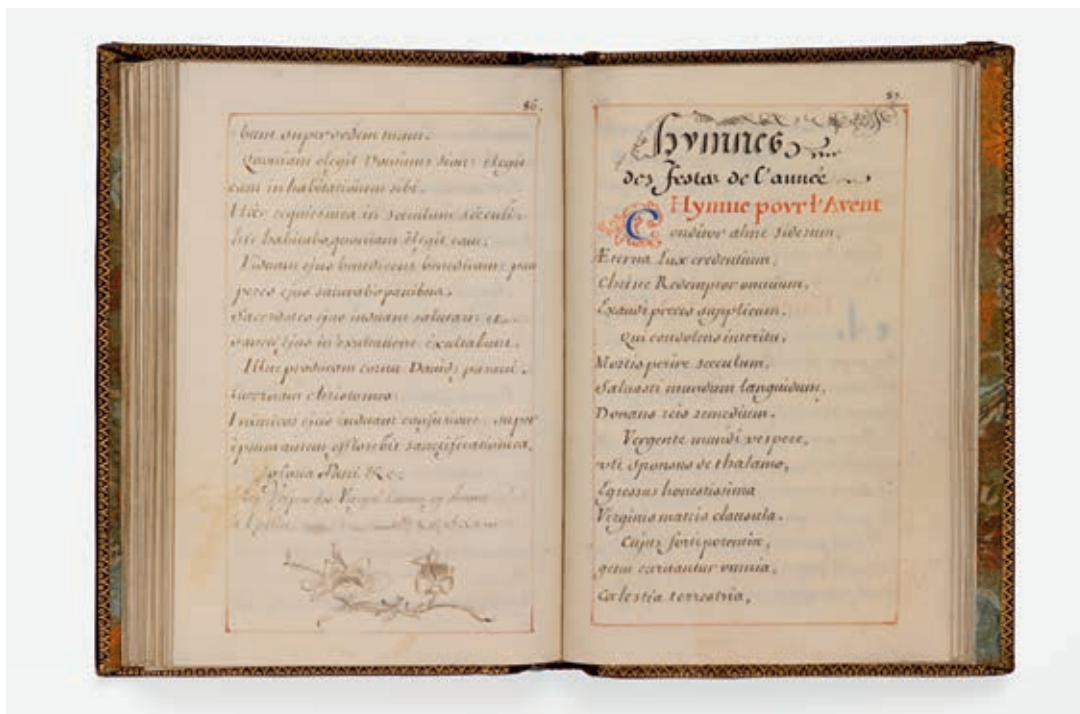 86.
tuam super sedem tuam.
Quoniam elegit Dominus Sion: elegit
eam in habitationem sibi.
Hæc requies mea in sæculum sæculi:
hic habitabo, quoniam elegi eam.
Viduam ejus benedicens benedicam: pau
peres ejus saturabo panibus.
Sacerdotes ejus induam salutari: et
sancti ejus in exultatione exultabunt.
Illuc producam cornu David: paravi
lucernam christo meo.
Inimicos ejus induam confusione: super
ipsum autem efflorebit sanctificatio mea.
Gloria Patri &c.
87.
Hymnes
des festes de l'année
Hymne povr l'Avent
Conditor alme siderum,
Æterna lux credentium,
Christe Redemptor omnium,
Exaudi preces supplicum.
Qui condolens interitu,
Mortis perire sæculum,
Salvasti mundum languidum,
Donans reis remedium.
Vergente mundi vespere,
vti sponsus de thalamo,
Egressus honestissima
Virginis matris clausula.
Cujus forti potentiæ,
genu curvantur omnia,
Cœlestia terrestria,